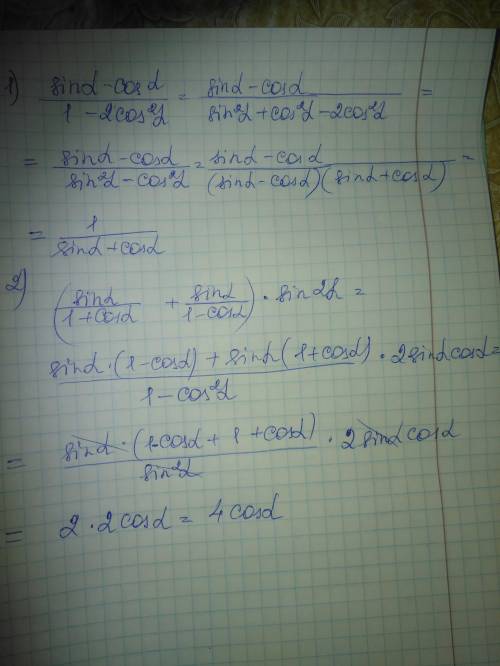 1) (sinα - cosα)/(1 - 2cos²α) = (sinα - cosα)/(sin²α + cos²α - 2cos²α) =
= (sinα - cosα)/(sin²α - cos²α) = (sinα - cosα)/((sinα - cosα)(sinα + cosα)) =
= 1/(sinα + cosα)
2)
(sinα/(1 + cosα) + sinα/(1 - cosα)) · sin2α =
(sinα · (1 - cosα) + sinα(1 + cosα))/(1 - cos²α) · 2sinαcosα =
= (sinα · (1 - cosα + 1 + cosα))/(sin²α) · 2sinαcosα
= 2 · 2cosα = 4cosα